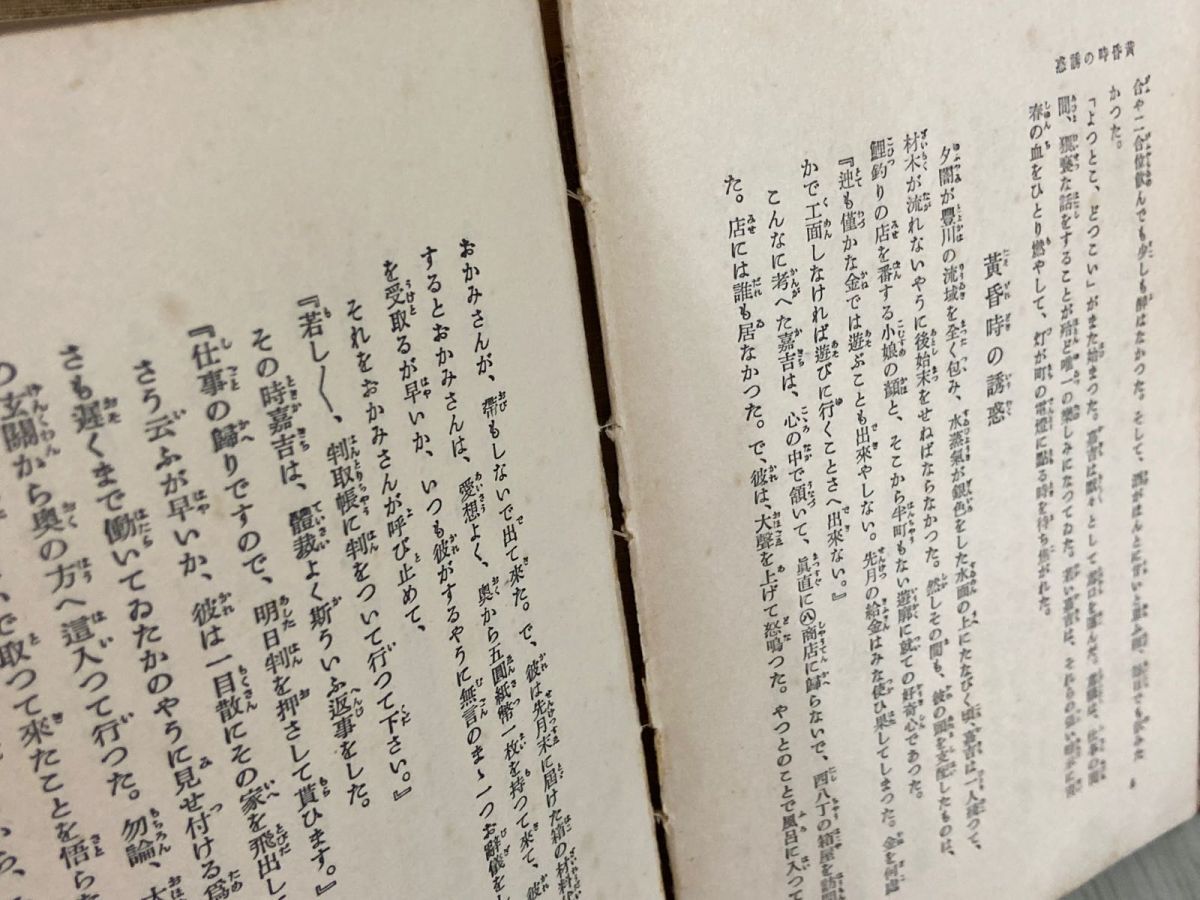 黄昏時の誘惑
合や二合位飲んでも少しも酔はなかつた。そして、
かつた。
「よつとこ、どつこい」がまた始まつた。嘉吉は
間、猥褻な話をすることが殆ど唯一の楽しみになつてゐた。若い嘉吉は、それらの
春の血をひとり燃やして、灯が町の電燈に點る時を待ち焦がれた。
黄昏時の誘惑
夕闇が豊川の流域を全く包み、水蒸氣が銀色をした水面の上にたなびく頃、嘉吉は一人
材木が流れないやうに後始末をせねばならなかつた。然しその間も、彼の頭を支配したものは、
鯉釣りの店を番する小娘の顔と、そこから半町もない遊廓に就ての好奇心であつた。
『迚も僅かな金では遊ぶことも出來やしない。先月の給金はみな使ひ果してしまつた。金を何處
かで工面しなければ遊びに行くことさへ出來ない。』
こんなに考へた嘉吉は、心の中で頷いて、眞直に㊇商店に歸らないで、四八丁の箱屋を訪問
た。店には誰も居なかつた。で、彼は、大聲を上げて怒鳴つた。やつとのことで風呂に入つて
おかみさんが、帶もしないで出て來た。で、彼は先月末に届けた箱の材料
するとおかみさんは、愛想よく、奥から五圓紙幣一枚を持つて來て、彼
を受取るが早いか、いつも彼がするやうに無言のまゝ一つお辭儀を
それをおかみさんが呼び止めて、
『若し〱、判取帳に判をついて行つて下さい。』
その時嘉吉は、體裁よく斯ういふ返事をした。
『仕事の歸りですので、明日判を押さして貰ひます。』
さう云ふが早いか、彼は一目散にその家を飛出し
さも遲くまで働いてゐたかのやうに見せ付ける爲
の玄關から奥の方へ這入つて行つた。勿論、
で取つて來たことを悟ら